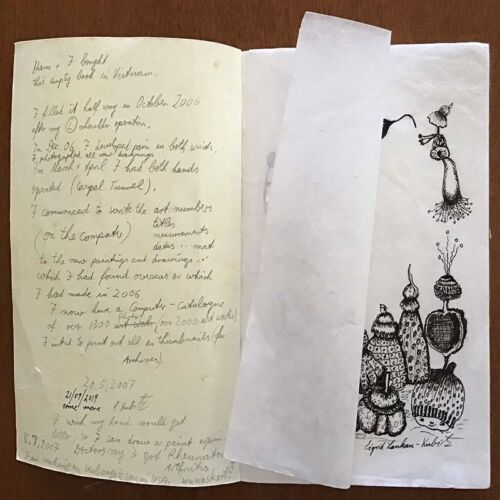 Hans + I bought
this empty book in Vietnam.
I filled it half way in October 2006
after my (L) shoulder operation.
In Dec. 06 I developed pain in both wrists.
I photographed all new drawings
In March + April I had both hands
operated (Carpal Tunnel).
I commenced to write the art numbers
(on the Computer) titles
measurements
dates .. next
to the new paintings and drawings ..
which I had found overseas or which
I had made in 2006.
I now have a Computer-Catalogue
of over 1300 (over 2000 art works)
I intend to print out all as thumbnails (for
Archives).
20.5.2007
21/09/2019
some more S. Kubitz
I wish my hand would get
better so I can draw or paint again.
8.9.2007 Doctors say I got Rheumatoid
Arthritis
I am
in USA,
Sigrid Lankau-Kubitz